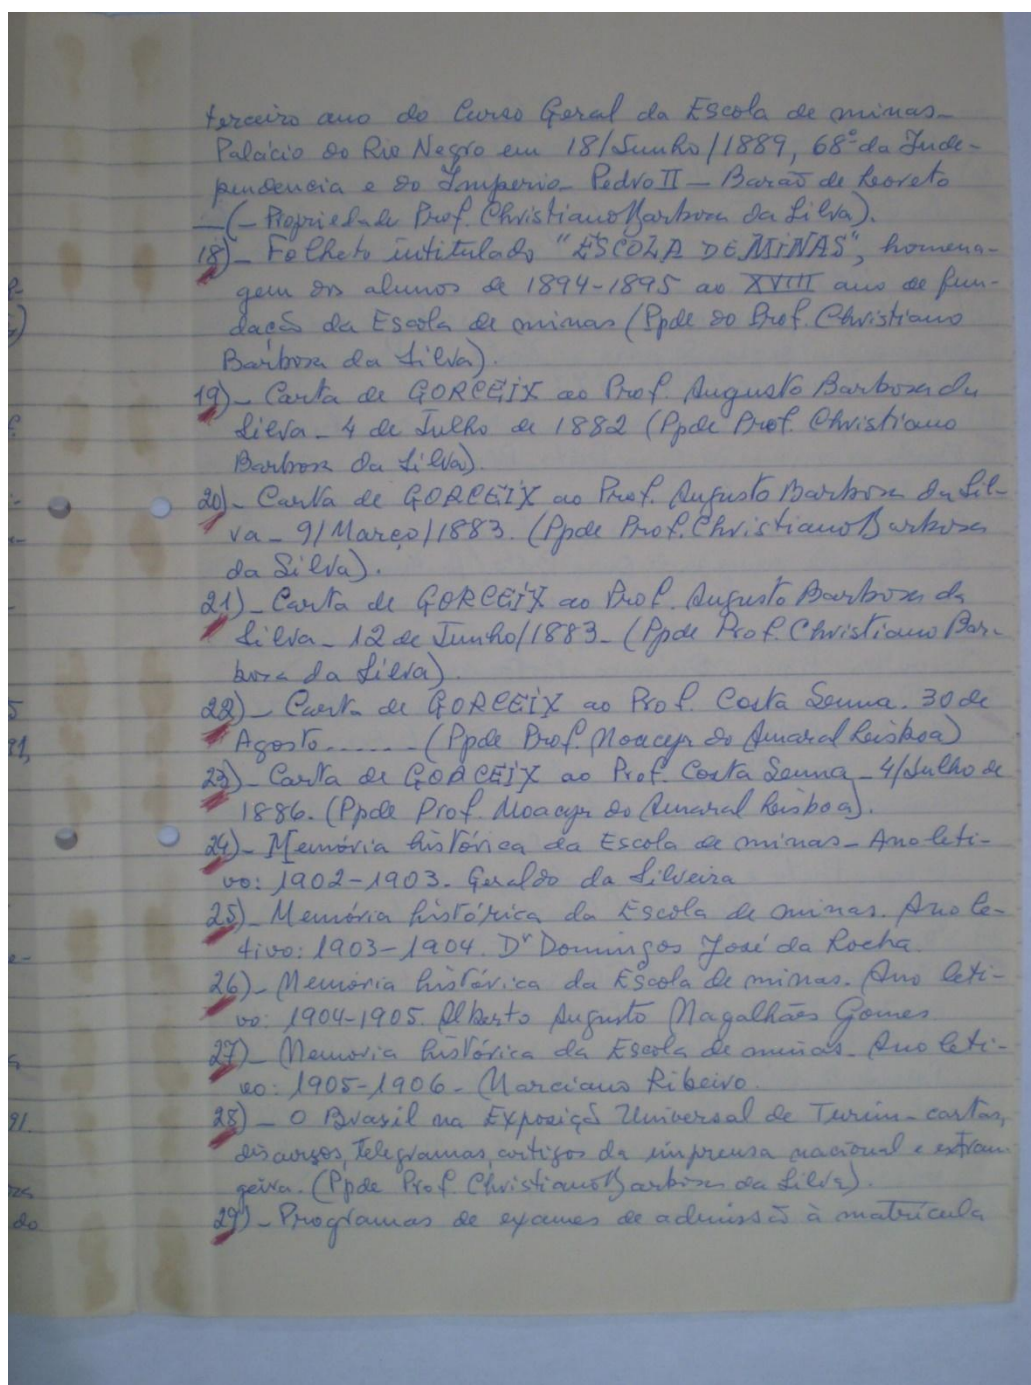 terceiro ano do Curso Geral da Escola de minas_
Palácio do Rio Negro em 18/Junho/1889, 68º da Inde-
pendencia e do Imperio_ Pedro II _ Barão de Loreto
_(_ Propriedade Prof. Christiano Barbosa da Silva).
18)_ Folheto intitulado "ESCOLA DE MINAS", homena-
gem dos alunos de 1894-1895 ao XVIII ano de fun-
dação da Escola de minas (Ppde do Prof. Christiano
Barbosa da Silva).
19)_ Carta de GORCEIX ao Prof. Augusto Barbosa da
Silva_ 4 de Julho de 1882 (Ppde Prof. Christiano
Barbosa da Silva).
20)_ Carta de GORCEIX ao Prof. Augusto Barbosa da Sil-
va_ 9/Março/1883. (Ppde Prof. Christiano Barbosa
da Silva).
21)_ Carta de GORCEIX ao Prof. Augusto Barbosa da
Silva_ 12 de Junho/1883_ (Ppde Prof. Christiano Bar-
bosa da Silva)
22)_ Carta de GORCEIX ao Prof. Costa Senna. 30 de
Agosto....... (Ppde Prof. Moacyr do Amaral Lisboa)
23)_ Carta de GORCEIX ao Prof. Costa Senna_ 4/Julho de
1886. (Ppde Prof. Moacyr do Amaral Lisboa).
24)_ Memória histórica da Escola de minas_ Ano leti-
vo: 1902-1903. Geraldo da Silveira
25)_ Memória histórica da Escola de minas. Ano le-
tivo: 1903-1904. Dr Domingos José da Rocha.
26)_ Memória histórica da Escola de minas. Ano leti-
vo: 1904-1905. Alberto Augusto Magalhães Gomes
27)_ Memoria histórica da Escola de minas_ Ano leti-
vo: 1905-1906_ Marciano Ribeiro.
28)_ O Brasil na Exposição Universal de Turim_ cartas,
discursos, telegramas, artigos da imprensa nacional e extran-
geira. (Ppde Prof Christiano Barbosa da Silva).
29)_ Programas de exames de admissão à matrícula